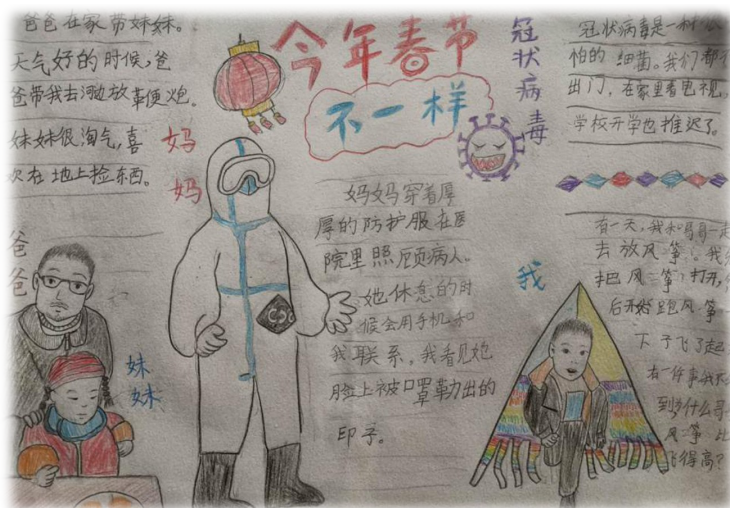 今年春节
不一样
爸爸在家带妹妹。
天气好的时候,爸
爸带我去河边放革便炮。
妹妹很淘气,喜
欢在地上捡东西。
妈
妈
爸
爸
妹
妹
妈妈穿着厚
厚的防护服在医
院里照顾病人。
她休息的时
候会用手机和
我联系,我看见她
脸上被口罩勒出的
印子。
冠
状
病
毒
冠状病毒是一种
怕的细菌。我们都
出门,在家里看电视。
学校开学也推迟了。
我
有一天,我和哥哥一
去放风筝。我
把风筝打开,
后开始跑风筝
下子飞了起
有一件事我
到为什么哥
风筝比
飞得高?